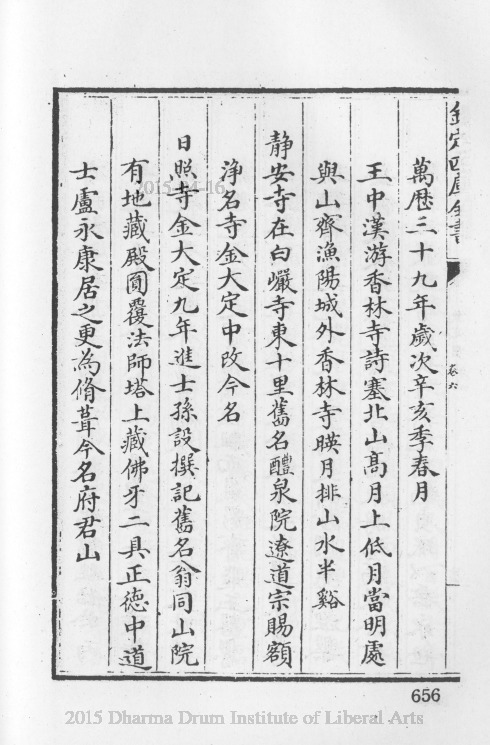 欽定四庫全書
卷六
萬歷三十九年歲次辛亥季春月
王中漢游香林寺詩塞北山高月上低月當明處
與山齊漁陽城外香林寺暎月排山水半谿
靜安寺在白巖寺東十里舊名醴泉院遼道宗賜額
淨名寺金大定中改今名
日照寺金大定九年進士孫設撰記舊名翁同山院
有地藏殿圎覆法師塔上藏佛牙二具正德中道
士盧永康居之更為脩葺今名府君山
2015-04-16
656
2015 Dharma Drum Institute of Liberal Arts